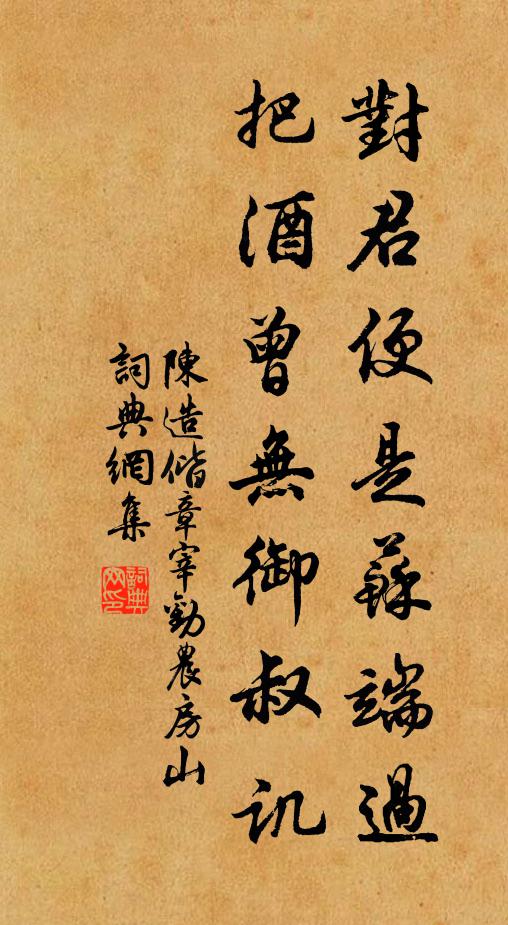 對君便是蘇端過
把酒曾無御叔訊
陳造偕章宰勸農房山
詞典網集
詞典網印